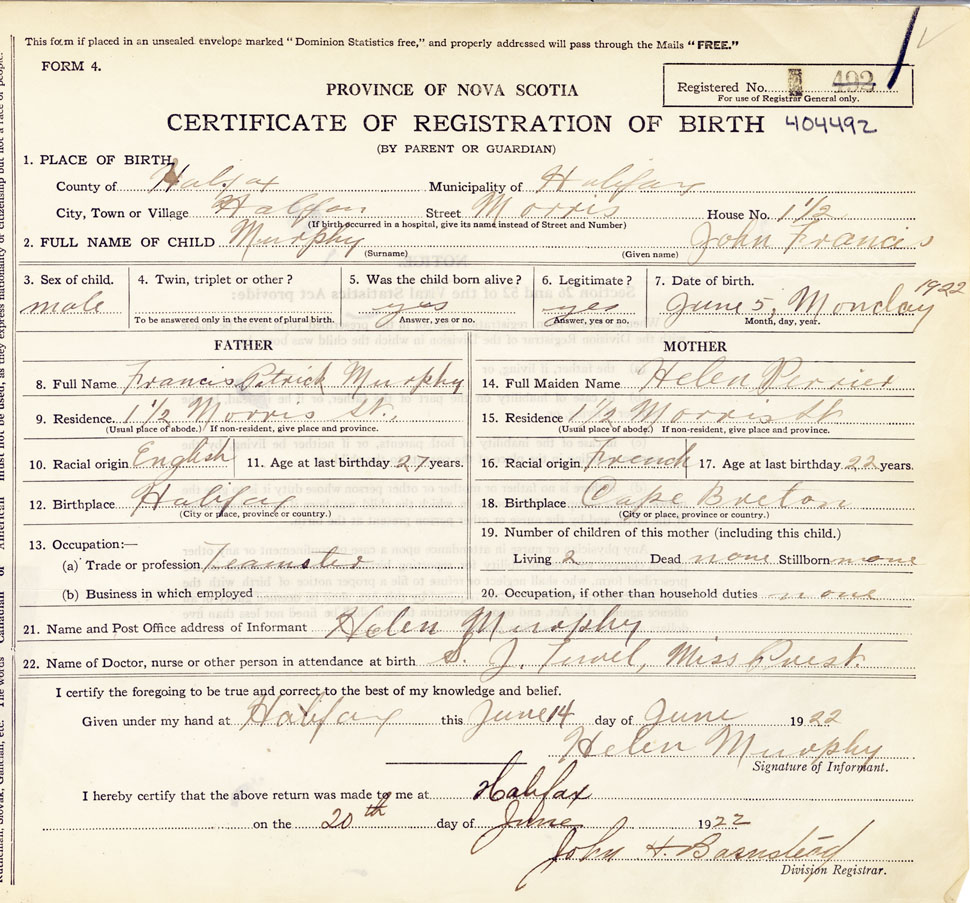 This form if placed in an unsealed envelope marked "Dominion Statistics free," and properly addressed will pass through the Mails "FREE."
FORM 4.
PROVINCE OF NOVA SCOTIA
Registered No. 492
For use of Registrar General only.
CERTIFICATE OF REGISTRATION OF BIRTH 404492
(BY PARENT OR GUARDIAN)
1. PLACE OF BIRTH,
County of Halifax Municipality of Halifax
City, Town or Village Halifax Street Morris House No. 1 1/2
(If birth occurred in a hospital, give its name instead of Street and Number)
2. FULL NAME OF CHILD Murphy John Francis
(Surname) (Given name)
3. Sex of child. male
4. Twin, triplet or other?
To be answered only in the event of plural birth.
5. Was the child born alive? yes
Answer, yes or no.
6. Legitimate? yes
Answer, yes or no.
7. Date of birth. 1922
June 5, Monday
Month, day, year.
FATHER
8. Full Name Francis Patrick Murphy
9. Residence. 1 1/2 Morris St.,
(Usual place of abode.) If non-resident, give place and province.
10. Racial origin English 11. Age at last birthday 27 years.
12. Birthplace Halifax
(City or place, province or country.)
13. Occupation:—
(a) Trade or profession Teamster
(b) Business in which employed
MOTHER
14. Full Maiden Name Helen Perrier
15. Residence 1 1/2 Morris St
(Usual place of abode.) If non-resident, give place and province.
16. Racial origin French 17. Age at last birthday 22 years.
18. Birthplace Cape Breton
(City or place, province or country.)
19. Number of children of this mother (including this child.)
Living 2 Dead none Stillborn none
20. Occupation, if other than household duties none
21. Name and Post Office address of Informant Helen Murphy
22. Name of Doctor, nurse or other person in attendance at birth S. J. Miss
I certify the foregoing to be true and correct to the best of my knowledge and belief.
Given under my hand at Halifax this June 14 day of June 1922
Helen Murphy
Signature of Informant.
I hereby certify that the above return was made to me at Halifax
on the 20th day of June 1922
John H. Barnstead
Division Registrar.